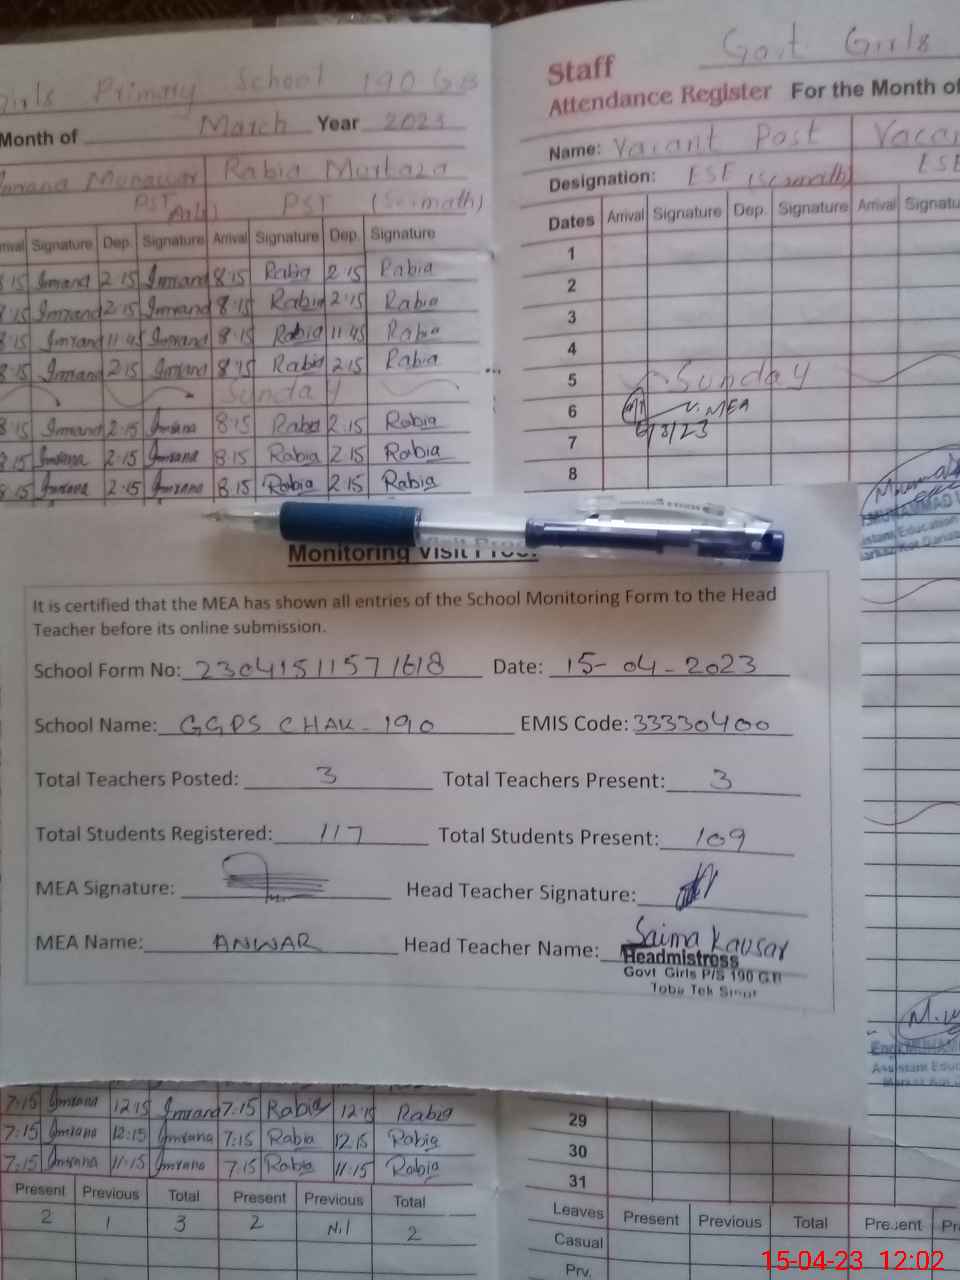 Girls Primary School 190 GB
Month of March Year 2023
Imrana Munawar Rabia Murtaza
PST Arts PST (Sc.math)
Arrival Signature Dep. Signature Arrival Signature Dep. Signature
8:15 Imrana 2:15 Imrana 8:15 Rabia 2:15 Rabia
8:15 Imrana 2:15 Imrana 8:15 Rabia 2:15 Rabia
8:15 Imrana 11:45 Imrana 8:15 Rabia 11:45 Rabia
8:15 Imrana 2:15 Imrana 8:15 Rabia 2:15 Rabia
Sunday
8:15 Imrana 2:15 Imrana 8:15 Rabia 2:15 Rabia
8:15 Imrana 2:15 Imrana 8:15 Rabia 2:15 Rabia
8:15 Imrana 2:15 Imrana 8:15 Rabia 2:15 Rabia
Govt Girls
Staff
Attendance Register For the Month of
Name: Vacant Post
Designation: ESE (Sc.math) ESE
Dates Arrival Signature Dep. Signature Arrival
1
2
3
4
5 Sunday
6 V. MEA
6/3/23
7
8
Monitoring Visit Proof
It is certified that the MEA has shown all entries of the School Monitoring Form to the Head
Teacher before its online submission.
School Form No: 23041511571618 Date: 15-04-2023
School Name: GGPS CHAK-190 EMIS Code: 33330400
Total Teachers Posted: 3 Total Teachers Present: 3
Total Students Registered: 117 Total Students Present: 109
MEA Signature: Head Teacher Signature:
MEA Name: ANWAR Head Teacher Name: Saima Kausar
Headmistress
Govt Girls P/S 190 G.B
Toba Tek Singh
7:15 Imrana 12:15 Imrana 7:15 Rabia 12:15 Rabia
7:15 Imrana 12:15 Imrana 7:15 Rabia 12:15 Rabia
7:15 Imrana 11:15 Imrana 7:15 Rabia 11:15 Rabia
Present Previous Total Present Previous Total
2 1 3 2 Nil 2
29
30
31
Leaves Present Previous Total Present
Casual
Prv.
15-04-23 12:02